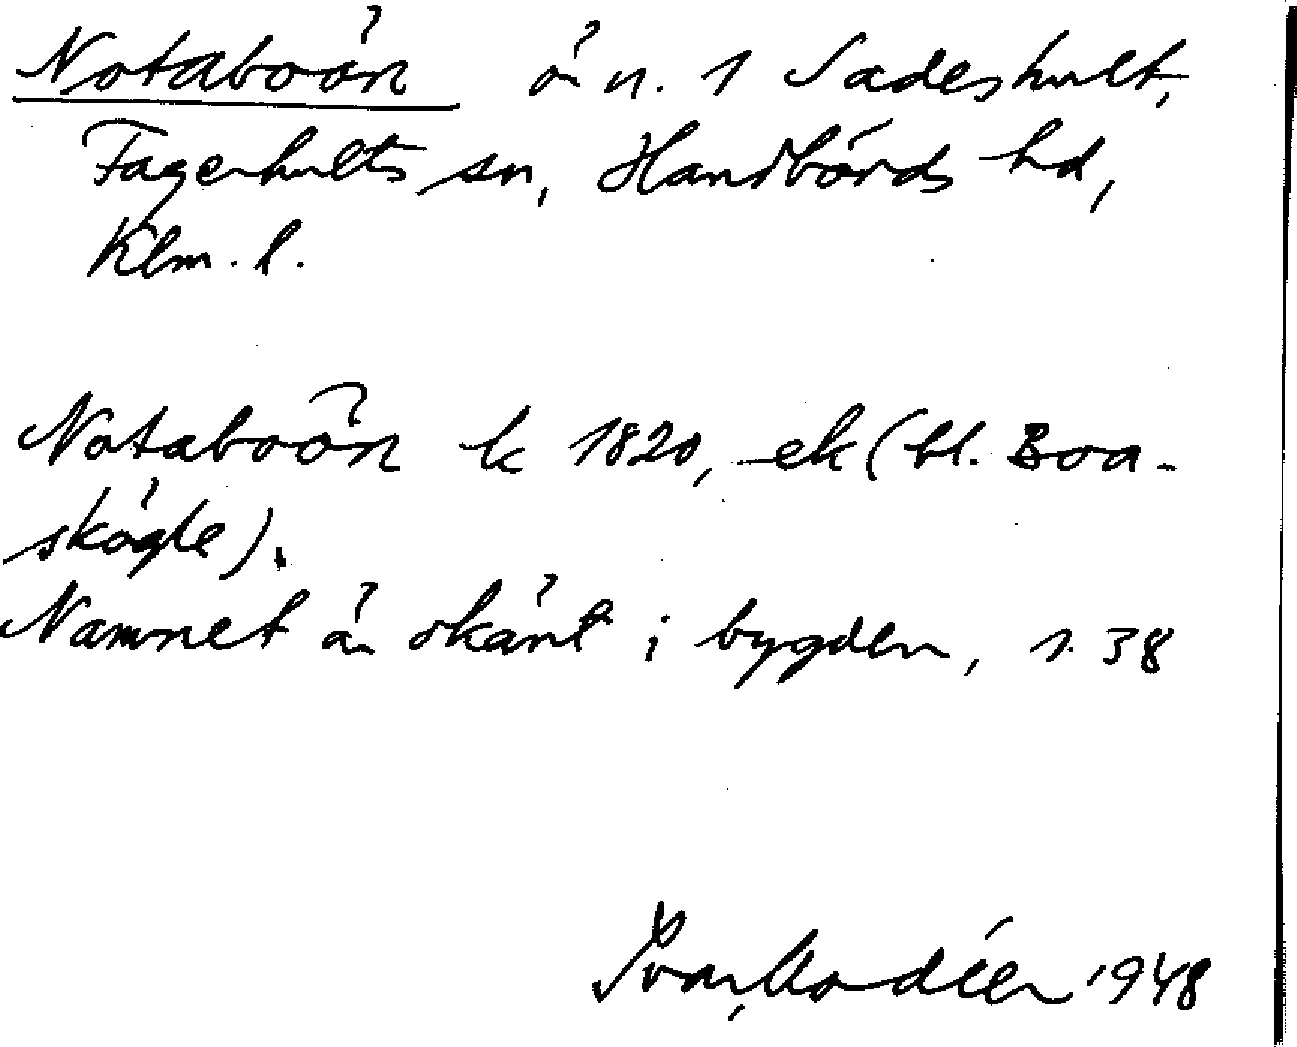 Notaboån å n. 1 Sadeshult,
Fagerhults sn, Handbörds hd,
Klm. l.
Notaboån k 1820, ek (bl. Boa-
skögle).
Namnet är okänt i bygden, 1. 38
Ivar Modéer 1948